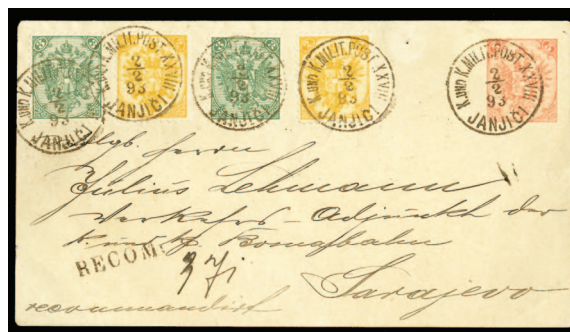 3 3
K.UND K.MILIT.POST XXVIII 2/2 93 JANJIĆI
K.UND K.MILIT.POST XXVIII 2/2 93 JANJIĆI
K.UND K.MILIT.POST XXVIII 2/2 93 JANJIĆI
K.UND K.MILIT.POST XXVIII 2/2 93 JANJIĆI
K.UND K.MILIT.POST XXVIII 2/2 93 JANJIĆI
Herrn
Julius Lehmann
Verkehrs-Adjunkt der
k. und k. Bosnabahn
RECOM.
Sarajevo
recommandirt